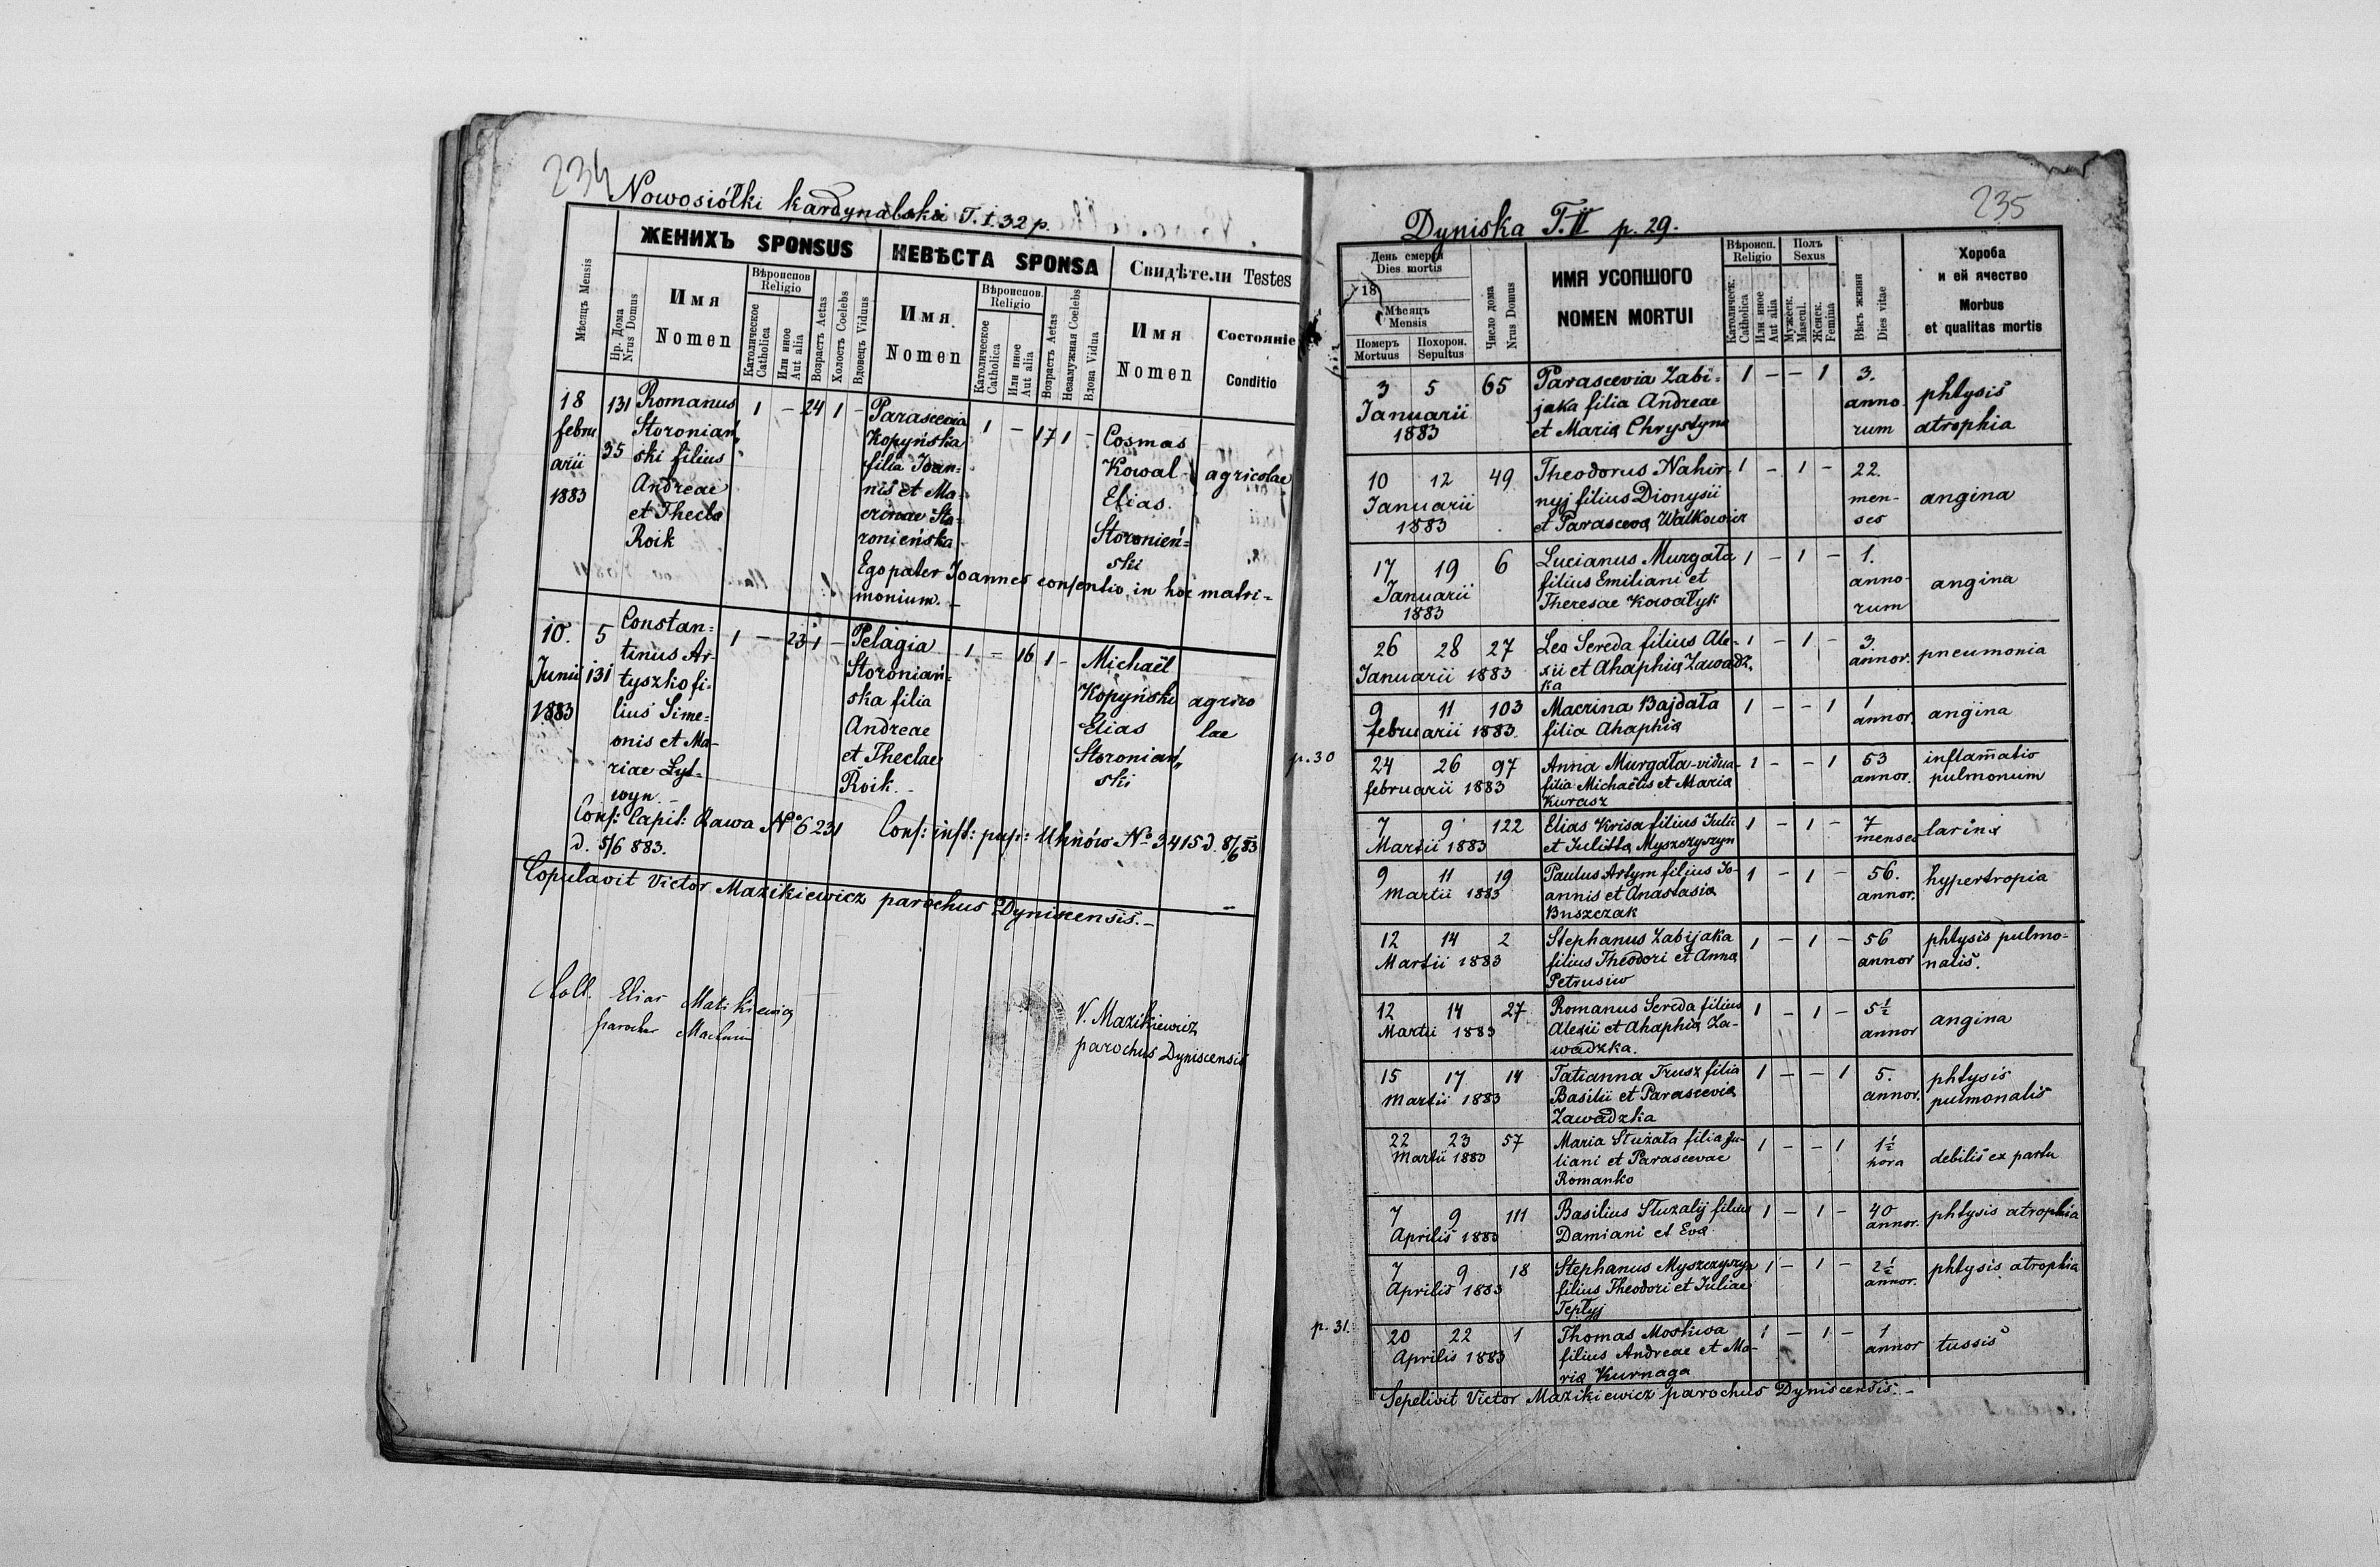 234
Nowosiółki kardynalskie T. I. 32 p.
ЖЕНИХЪ SPONSUS
НЕВѢСТА SPONSA
Свидѣтели Testes
Мѣсяцъ Mensis
Нр. Дома Nrus Domus
Имя Nomen
Вѣроиспов Religio
Католическое Catholica
Или иное Aut alia
Возрастъ Aetas
Холостъ Coelebs
Вдовецъ Viduus
Имя Nomen
Вѣроиспов. Religio
Католическое Catholica
Или иное Aut alia
Возрастъ Aetas
Незамужная Coelebs
Вдова Vidua
Имя Nomen
Состояніе Conditio
18 febru arii 1883
131 35
Romanus
Storoniań„
ski filius
Andreae
et Thecla
Roik
1 – 24 1 –
Parascevia
Kopyńska
filia Joan=
nis et Ma=
crinae Sto=
ronieńska
1 – 17 1 –
Cosmas
Kowal
Elias
Storonień=
ski
agricolae
Ego pater Joannes consentio in hoc matri=
monium. –
10. Junii 1883
5 131
Constan=
tinus Ar-
tyszko fi-
lius Sime=
onis et Ma-
riae Lyt-
wyn. –
1 – 23 1 –
Pelagia
Storoniań=
ska filia
Andreae
et Theclae
Roik. –
1 – 16 1 –
Michaël
Kopyński
Elias
Storoniań„
ski
agrico
lae
Cons: Capit: Rawa No 6231
d. 5/6 883.
Cons: inst: pup: Uhnów No 3415 d. 8/6 83
Copulavit Victor Mazikiewicz parochus Dyniscensis. –
Coll. Elias Mazikiewicz
parochus
V. Mazikiewicz
parochus Dyniscensis
235
Dyniska T. II p. 29.
День смерти Dies mortis
18
Мѣсяцъ Mensis
Померъ Mortuus
Похорон. Sepultus
Число дома Nrus Domus
ИМЯ УСОПШОГО
NOMEN MORTUI
Вѣроисп. Religio
Католическ. Catholica
Или иное Aut alia
Полъ Sexus
Мужеск. Mascul.
Женск. Femina
Вѣкъ жизни Dies vitae
Хороба
и ей ячество
Morbus
et qualitas mortis
3 5 65 Parascevia Zabi= 1 – – 1 3.
Januarii jaka filia Andreae anno phtysis
1883 et Maria Chrystyna rum atrophia
10 12 49 Theodorus Nahir- 1 – 1 – 22.
Januarii nyj filius Dionysii men- angina
1883 et Parasceva Walkowicz ses
17 19 6 Lucianus Murgała 1 – 1 – 1.
Januarii filius Emiliani et anno- angina
1883 Theresae Kowałyk rum
26 28 27 Leo Sereda filius Ale- 1 – 1 – 3.
Januarii 1883 xii et Ahaphia Zawadz annor. pneumonia
ka
9 11 103 Macrina Bajdała 1 – – 1 1
februarii 1883 filia Ahaphia annor. angina
p. 30
24 26 97 Anna Murgała-vidua- 1 – – 1 53 inflammatio
februarii 1883 filia Michaëlis et Maria annor. pulmonum
Kurasz
7 9 122 Elias Krisa filius Julii 1 – 1 – 7 larinx
Martii 1883 et Julitta Myszczyszyn menses
9 11 19 Paulus Artym filius Jo- 1 – 1 – 56. hypertropia
Martii 1883 annis et Anastasia annor.
Buszczak
12 14 2 Stephanus Zabijaka 1 – 1 – 56 phtysis pulmo-
Martii 1883 filius Theodori et Anna annor nalis.
Petrusiw
12 14 27 Romanus Sereda filius 1 – 1 – 5½
Martii 1883 Alexii et Ahaphia Za- annor angina
wadzka.
15 17 14 Tatianna Trusz filia 1 – – 1 5. phtysis
Martii 1883 Basilii et Parascevia annor. pulmonalis
Zawadzka
22 23 57 Maria Służała filia Ju- 1 – – 1 1½
Martii 1883 liani et Parascevae hora debilis ex partu
Romanko
7 9 111 Basilius Służalij filius 1 – 1 – 40 phtysis atrophia
Aprilis 1883 Damiani et Eva annor.
7 9 18 Stephanus Myszczyszyn 1 – 1 – 2½ phtysis atrophia
Aprilis 1883 filius Theodori et Juliae annor.
Tepłyj
p. 31.
20 22 1 Thomas Moskwa 1 – 1 – 1
Aprilis 1883 filius Andreae et Ma- annor tussis
ria Kurnaga
Sepelivit Victor Mazikiewicz parochus Dyniscensis. –